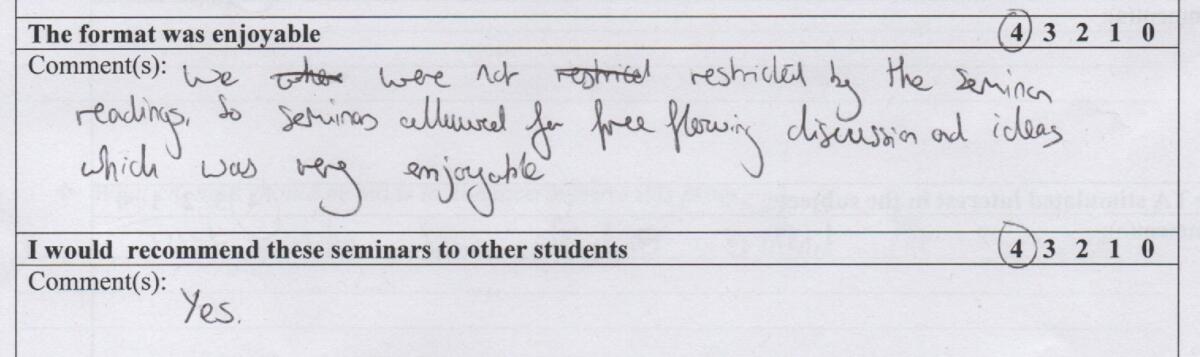 The format was enjoyable 4 3 2 1 0
Comment(s): We were not restricted by the seminar
readings, so seminars allowed for free flowing discussion and ideas
which was very enjoyable
I would recommend these seminars to other students 4 3 2 1 0
Comment(s):
Yes.